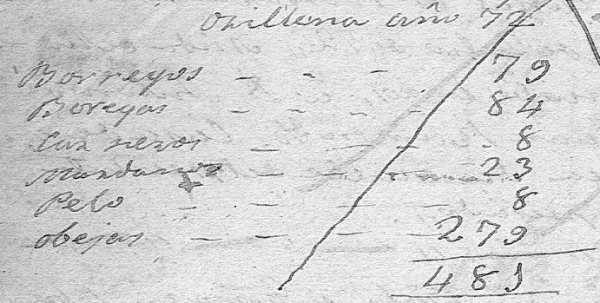 Otillena año 72
Borregos - - - 79
Boregas - - - - 84
Carneros - - - 8
Mardanos - - - 23
Pelo - - - 8
obejas - - - - 279
481